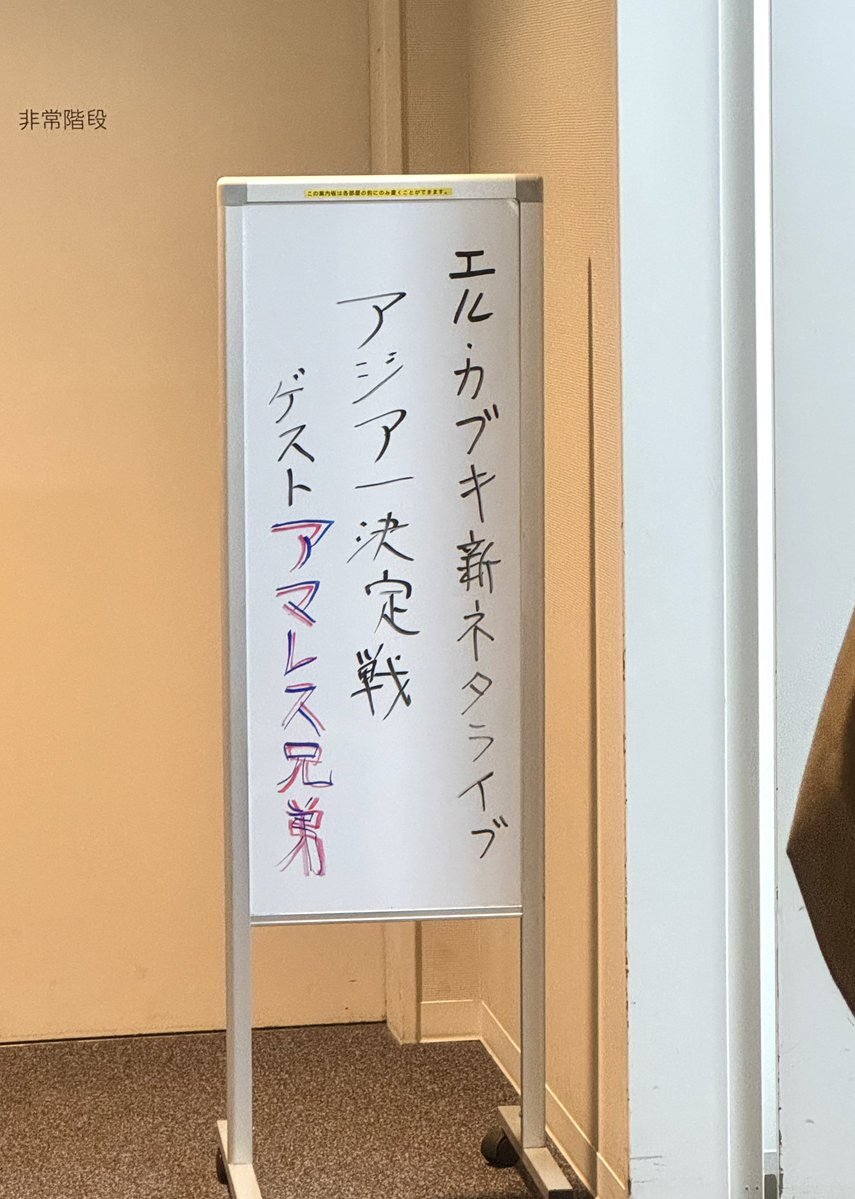 非常階段
この案内板は各部屋の前にのみ置くことができます。
エル・カブキ新ネタライブ
アジア一決定戦
ゲストアマレス兄弟